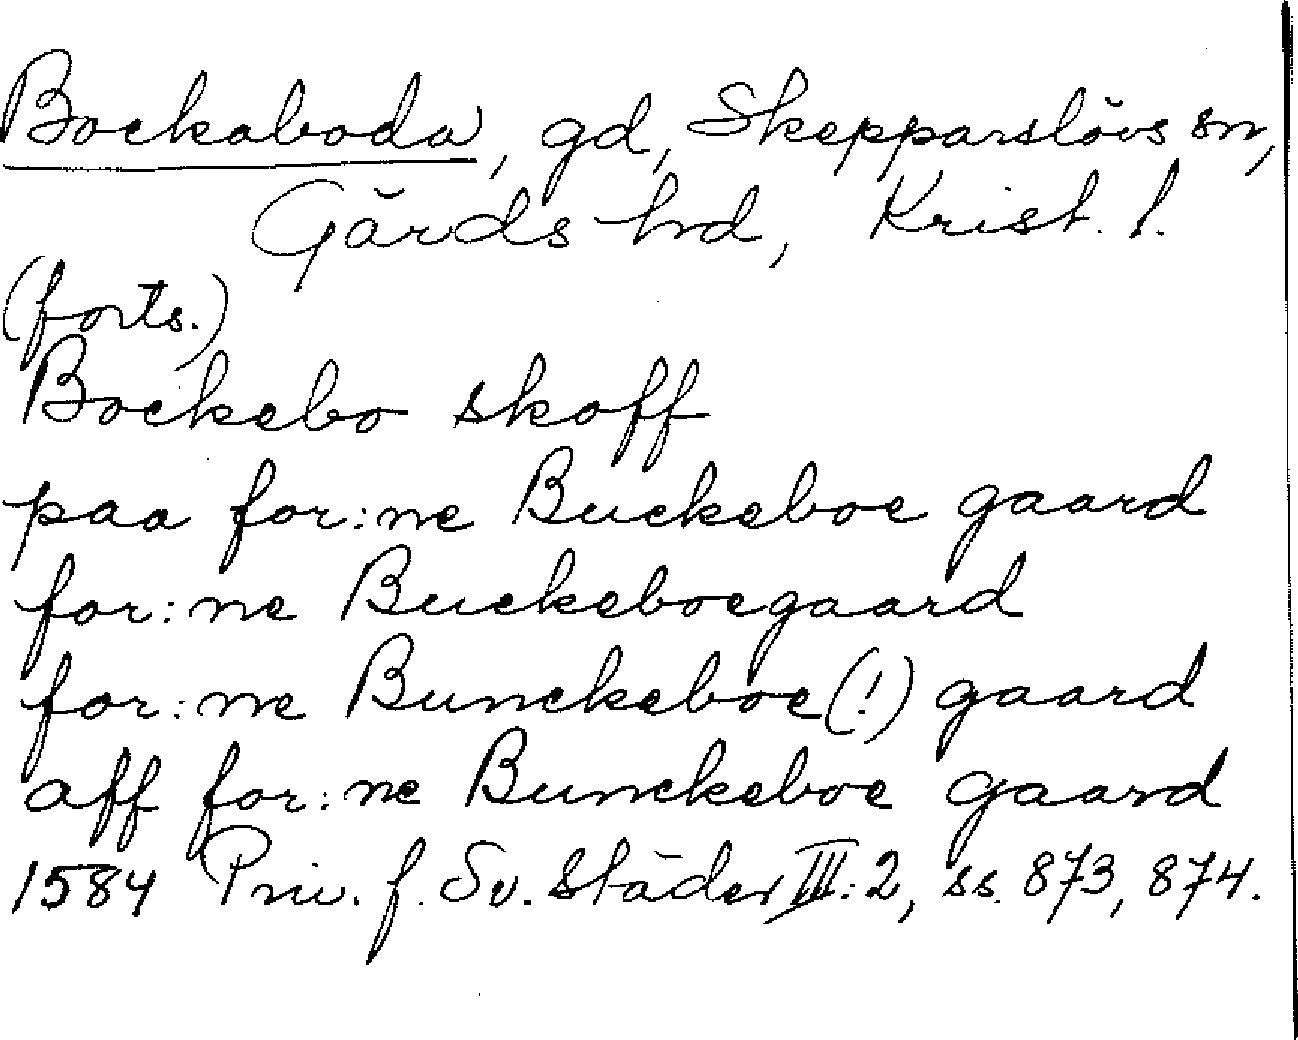 Bockaboda, gd, Skepparslövs sn,
Gärds hd, Krist. l.
(forts.)
Bockebo skoff
paa for:ne Buckeboe gaard
for:ne Buckeboegaard
for:ne Bunckeboe(!) gaard
aff for:ne Bunckeboe gaard
1584 Priv. f. Sv. städer III:2, ss. 873, 874.